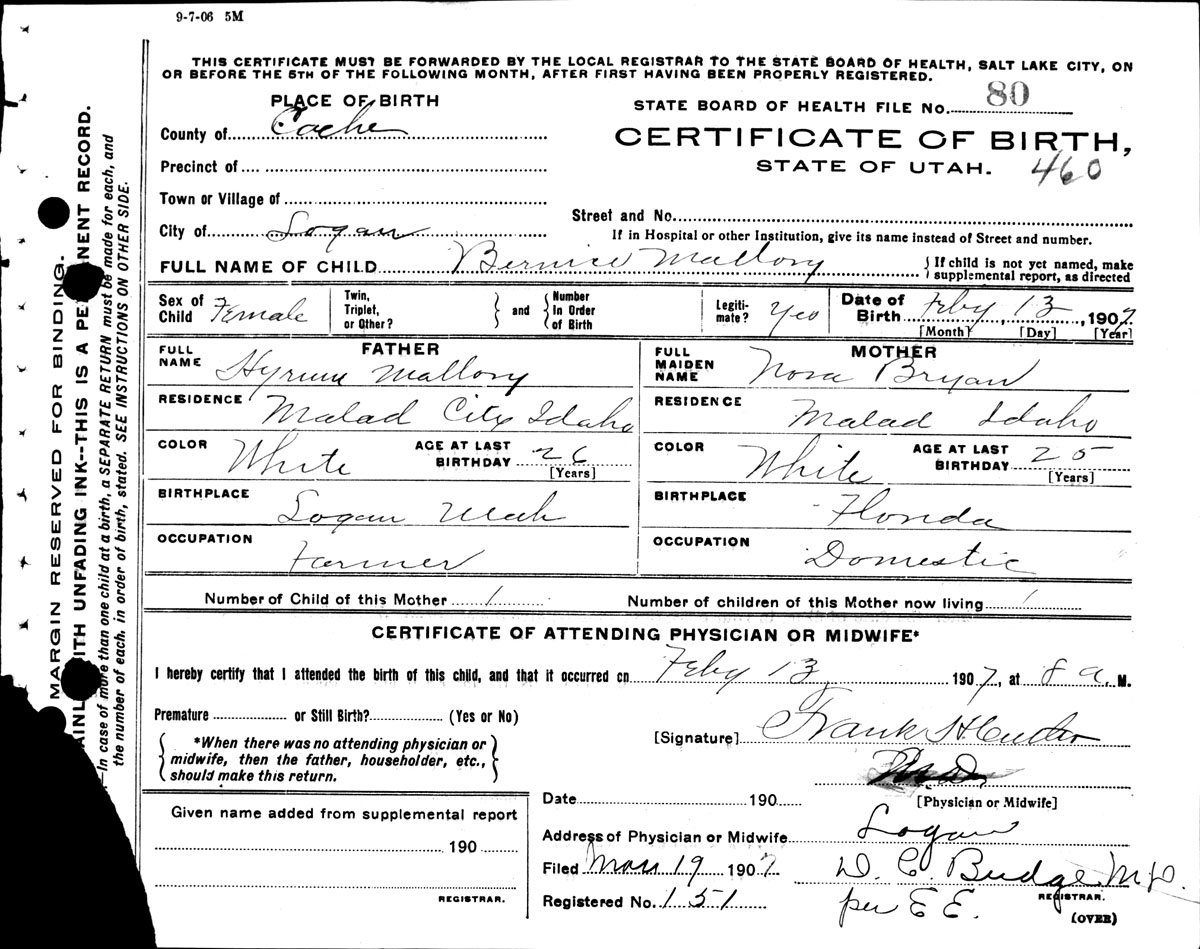 9-7-06 5M
THIS CERTIFICATE MUST BE FORWARDED BY THE LOCAL REGISTRAR TO THE STATE BOARD OF HEALTH, SALT LAKE CITY, ON
OR BEFORE THE 5TH OF THE FOLLOWING MONTH, AFTER FIRST HAVING BEEN PROPERLY REGISTERED.
PLACE OF BIRTH
STATE BOARD OF HEALTH FILE No. 80
County of Cache
CERTIFICATE OF BIRTH,
Precinct of
STATE OF UTAH. 460
Town or Village of
Street and No.
City of Logan
If in Hospital or other Institution, give its name instead of Street and number.
FULL NAME OF CHILD Bernise Mallory { If child is not yet named, make supplemental report, as directed
Sex of Child Female Twin, Triplet, or Other? } and { Number In Order of Birth Legitimate? Yes Date of Birth Feby 13, 1907
[Month] [Day] [Year]
FATHER
FULL NAME Hyrum Mallory
RESIDENCE Malad City Idaho
COLOR White AGE AT LAST BIRTHDAY 26 [Years]
BIRTHPLACE Logan Utah
OCCUPATION Farmer
MOTHER
FULL MAIDEN NAME Nora Bryan
RESIDENCE Malad Idaho
COLOR White AGE AT LAST BIRTHDAY 25 [Years]
BIRTHPLACE Florida
OCCUPATION Domestic
Number of Child of this Mother 1 Number of children of this Mother now living 1
CERTIFICATE OF ATTENDING PHYSICIAN OR MIDWIFE*
I hereby certify that I attended the birth of this child, and that it occurred on Feby 13, 1907, at 8 a. M.
Premature or Still Birth? (Yes or No)
{ *When there was no attending physician or
midwife, then the father, householder, etc.,
should make this return. }
[Signature] Frank
[Physician or Midwife]
Date 190
Address of Physician or Midwife Logan
Filed Mar 19 1907 D. C. Budge M.D.
REGISTRAR.
Registered No. 151 per E E.
(OVER)
Given name added from supplemental report
190
REGISTRAR.
MARGIN RESERVED FOR BINDING.
WITH UNFADING INK--THIS IS A PERMANENT RECORD.
In case of more than one child at a birth, a SEPARATE RETURN must be made for each, and
the number of each, in order of birth, stated. SEE INSTRUCTIONS ON OTHER SIDE.